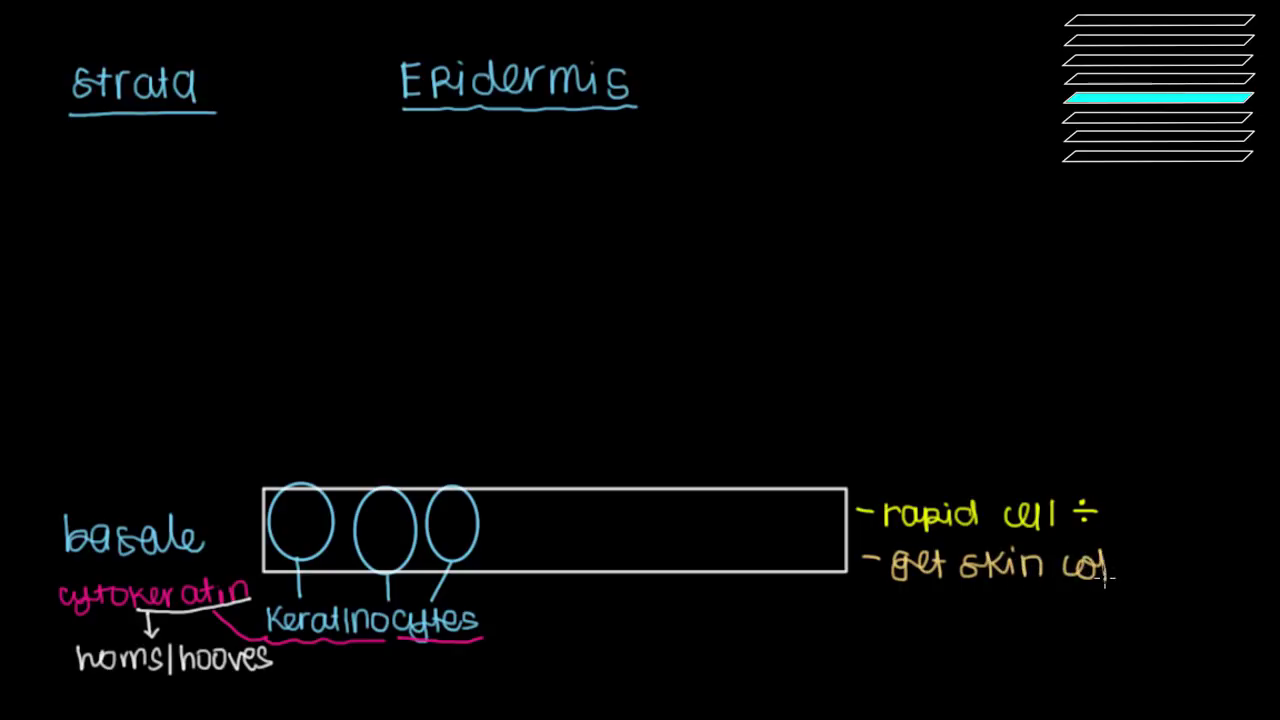 strata
Epidermis
basale
cytokeratin
horns/hooves
keratinocytes
- rapid cell ÷
- get skin col